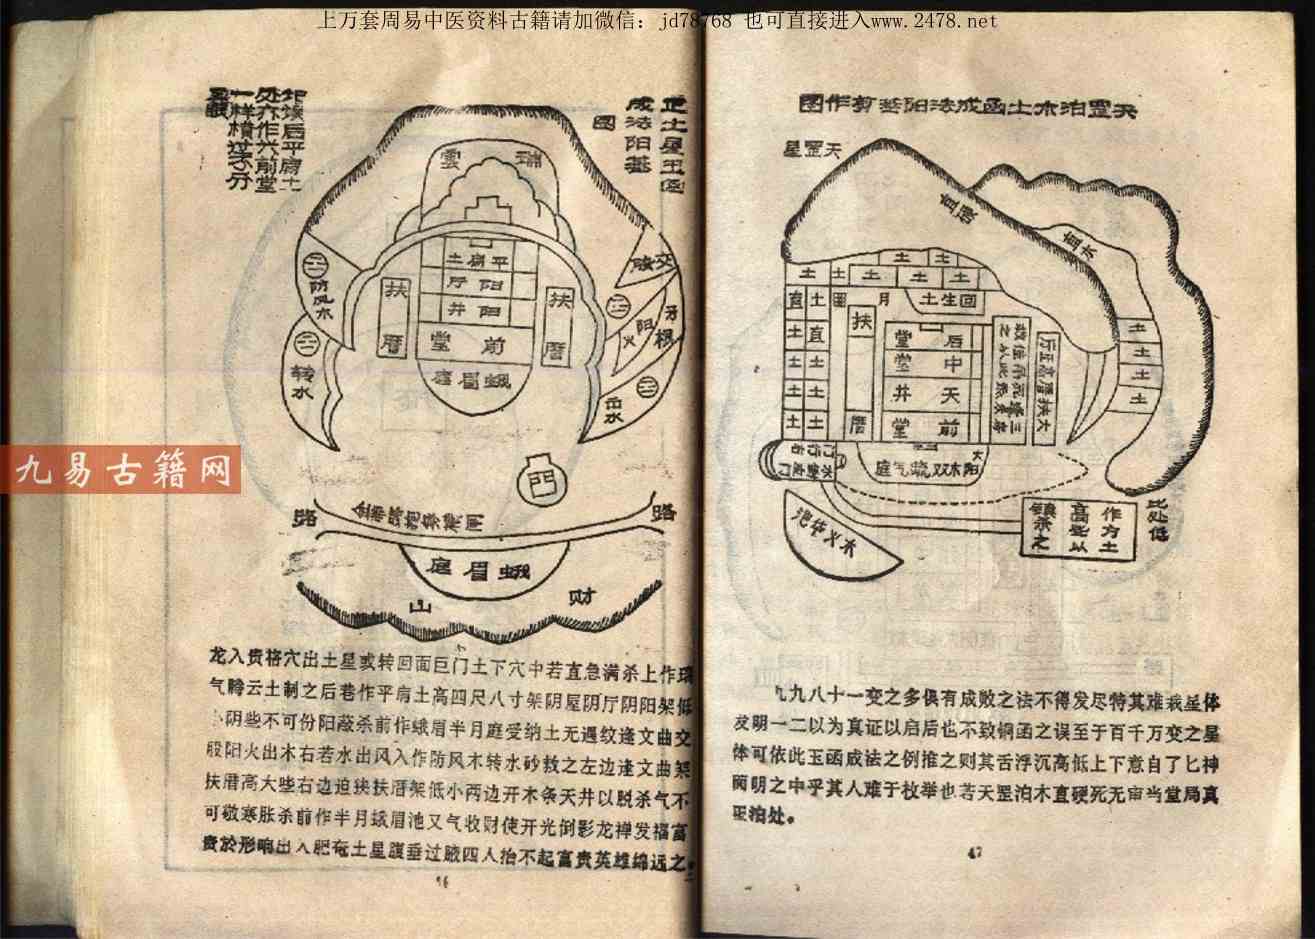 上万套周易中医资料古籍请加微信：jd78768 也可直接进入www.2478.net
九易古籍网
正土星玉函
成法阳基
图
处亦作穴前堂
一样横过不分
瑞雲
平廟土
阳厅
阳井
前堂
蛾眉庭
扶厝
扶厝
防风水
转水
阳火
出水
門
路
路
蛾眉庭
财山
龙入贵格穴出土星或转回面巨门土下穴中若直急满杀上作瑞
气腾云土制之后巷作平廟土高四尺八寸架阴屋阴厅阴阳架低
阴些不可份阳蔽杀前作蛾眉半月庭受纳土无遇纹逢文曲交
般阳火出木右若水出风入作防风木转水砂救之左边逢文曲架
扶厝高大些右边迫狭扶厝架低小两边开木条天井以脱杀气不
可敬寒胀杀前作半月蛾眉池又气收财使开光倒影龙禅发福富
贵於形响出入肥奄土星腹垂过腋四人抬不起富贵英雄绵远之
46
天罡泊木土函成法阳基剪作图
天罡星
直硬
直木
土土
土土土土土
回生土
月
直土
土直
土土
土土
土土
扶厝
后堂
中堂
天井
前堂
厅正高厝扶大
土
土
土
阳木双毓气庭
作方土
高些以
镇杀之
此处低
九九八十一变之多俱有成败之法不得发尽特其难裁星体
发明一二以为真证以启后也不致铜函之误至于百千万变之星
体可依此玉函成法之例推之则其舌浮沉高低上下意自了匕神
而明之中乎其人难于枚举也若天罡泊木直硬死无审当堂局真
正泊处。
47